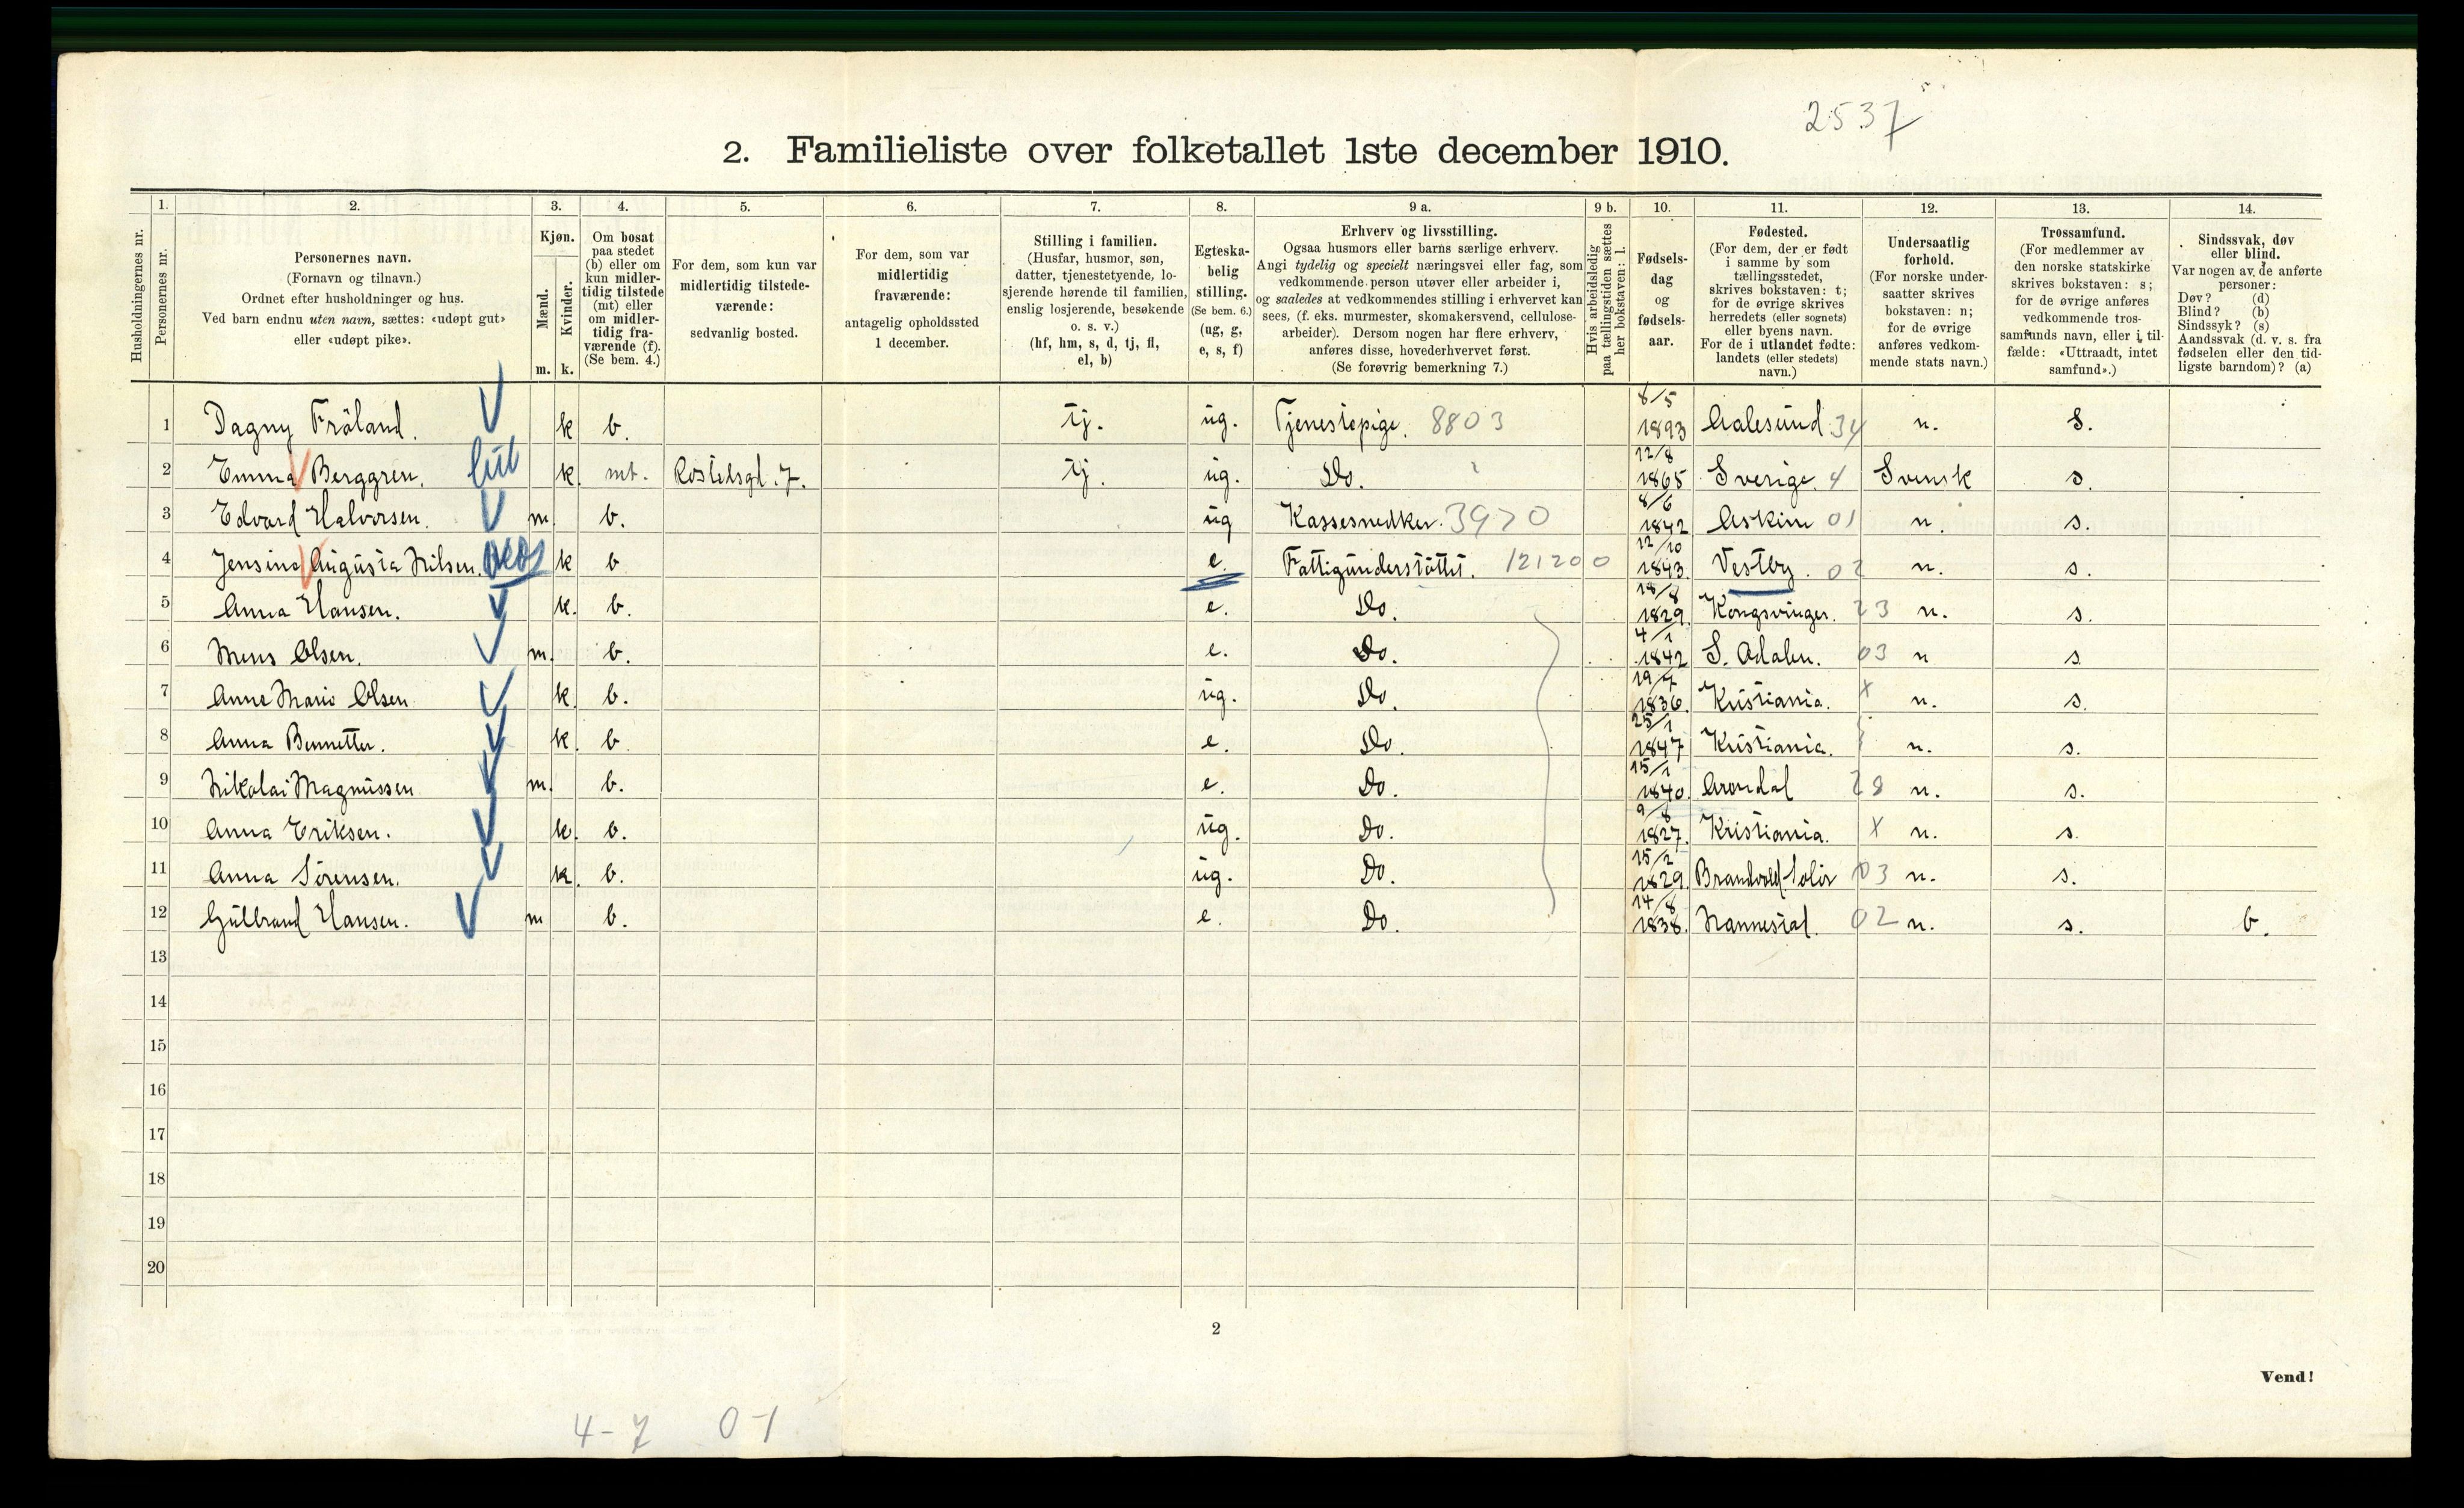 2537
2. Familieliste over folketallet 1ste december 1910.
1. 2. 3. 4. 5. 6. 7. 8. 9 a. 9 b. 10. 11. 12. 13. 14.
Husholdningernes nr.
Personernes nr.
Personernes navn.
(Fornavn og tilnavn.)
Ordnet efter husholdninger og hus.
Ved barn endnu uten navn, sættes: «udøpt gut»
eller «udøpt pike».
Kjøn.
Mænd.
Kvinder.
m. k.
Om bosat
paa stedet
(b) eller om
kun midler-
tidig tilstede
(mt) eller
om midler-
tidig fra-
værende (f).
(Se bem. 4.)
For dem, som kun var
midlertidig tilstede-
værende:
sedvanlig bosted.
For dem, som var
midlertidig
fraværende:
antagelig opholdssted
1 december.
Stilling i familien.
(Husfar, husmor, søn,
datter, tjenestetyende, lo-
sjerende hørende til familien,
enslig losjerende, besøkende
o. s. v.)
(hf, hm, s, d, tj, fl,
el, b)
Egteska-
belig
stilling.
(Se bem. 6.)
(ug, g,
e, s, f)
Erhverv og livsstilling.
Ogsaa husmors eller barns særlige erhverv.
Angi tydelig og specielt næringsvei eller fag, som
vedkommende person utøver eller arbeider i,
og saaledes at vedkommendes stilling i erhvervet kan
sees, (f. eks. murmester, skomakersvend, cellulose-
arbeider). Dersom nogen har flere erhverv,
anføres disse, hovederhvervet først.
(Se forøvrig bemerkning 7.)
Hvis arbeidsledig
paa tællingstiden sættes
her bokstaven: l.
Fødsels-
dag
og
fødsels-
aar.
Fødested.
(For dem, der er født
i samme by som
tællingsstedet,
skrives bokstaven: t;
for de øvrige skrives
herredets (eller sognets)
eller byens navn.
For de i utlandet fødte:
landets (eller stedets)
navn.)
Undersaatlig
forhold.
(For norske under-
saatter skrives
bokstaven: n;
for de øvrige
anføres vedkom-
mende stats navn.)
Trossamfund.
(For medlemmer av
den norske statskirke
skrives bokstaven: s;
for de øvrige anføres
vedkommende tros-
samfunds navn, eller i til-
fælde: «Uttraadt, intet
samfund».)
Sindssvak, døv
eller blind.
Var nogen av de anførte
personer:
Døv? (d)
Blind? (b)
Sindssyk? (s)
Aandssvak (d. v. s. fra
fødselen eller den tid-
ligste barndom)? (a)
1 Dagny Fröland. k b. tj. ug. Tjenestepige. 8803 8/5 1893 Aalesund 34 n. S.
2 Emma Berggren. k. mt. tj. ug. Do. 12/8 1865 Sverige. 4 Svensk s.
3 Edvard Halvorsen. m. b. ug Kassesnedker. 3970 8/6 1842 Askim 01 n. s.
4 Jensina Augusta Nilsen. k b e. Fattigunderstöttet. 121200 12/10 1843. Vestby. 02 n. s.
5 Anna Hansen. k. b. e. Do. 1829. Kongsvinger. 23 n. s.
6 Mens Olsen. m. b. e. Do. 4/1 1842 S. Odalen. 03 n s
7 Anne Marie Olsen k. b. ug. Do. 1836. Kristiania. x n. s.
8 Anna Bennetter. k. b e. Do. 25/1 1847 Kristiania. n. s.
9 Nikolai Magnussen m. b. e. Do. 15/1 1840. Arendal 28 n. s.
10 Anna Eriksen. k. b. ug. Do. 9/8 1827. Kristiania. x n. s.
11 Anna Sörensen. k. b. ug. Do. 15/2 1829. Brandvold Solör 03 n. s.
12 Gulbrand Hansen. m b. e. Do. 14/8 1838. Nannestad. 02 n. s. b.
13
14
15
16
17
18
19
20
2
Vend!
4-7 0-1